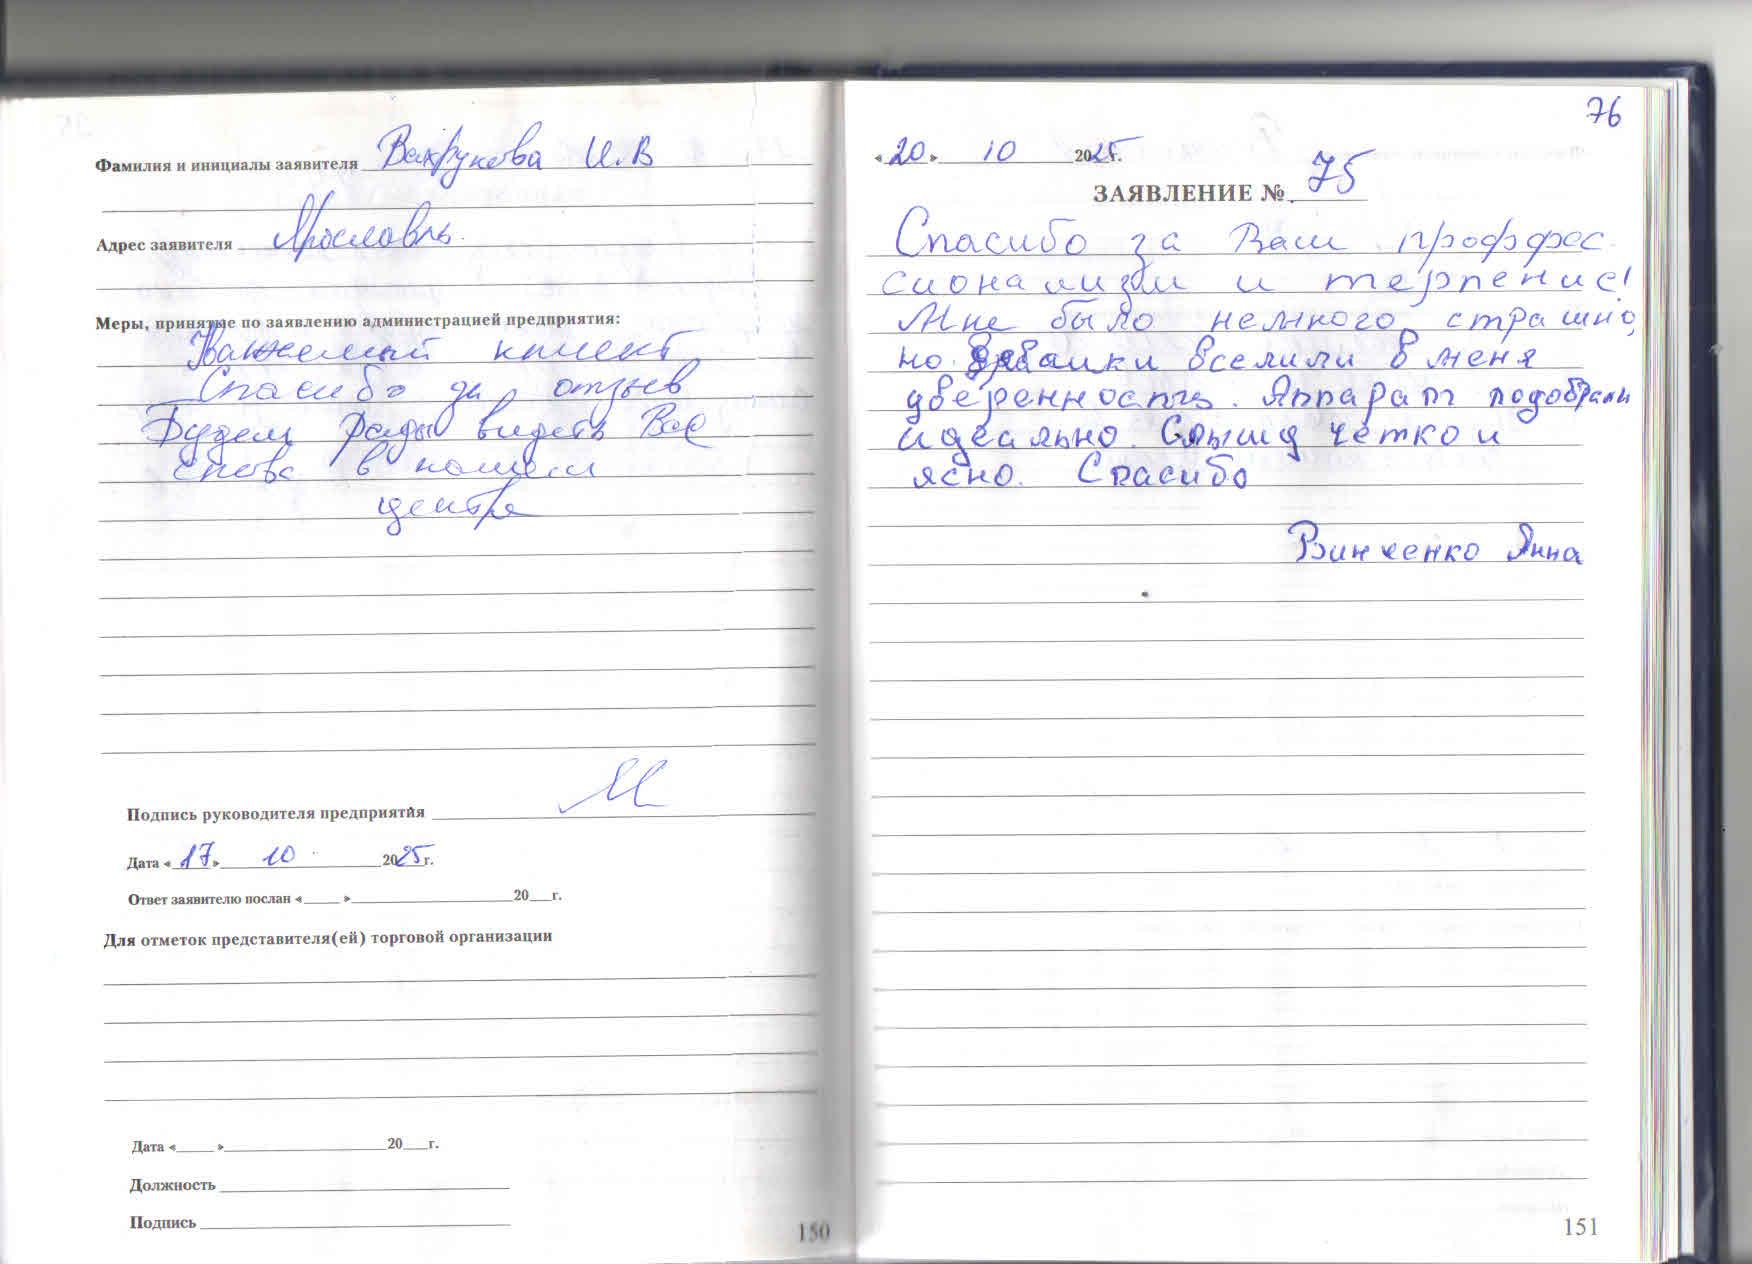 Фамилия и инициалы заявителя И.В
Адрес заявителя Ярославль
Меры, принятые по заявлению администрацией предприятия:
Уважаемый клиент
Спасибо за отзыв
Будем рады видеть Вас
снова в нашем
центре
Подпись руководителя предприятия
Дата «17» 10 2025г.
Ответ заявителю послан «____» ____ 20__г.
Для отметок представителя(ей) торговой организации
Дата «____» ____ 20__г.
Должность
Подпись
150
76
«20» 10 2025г.
ЗАЯВЛЕНИЕ № 75
Спасибо за Ваш проффес
сионализм и терпение!
Мне было немного страшно,
но вселили в меня
уверенность. Аппарат подобрали
идеально. Слышу четко и
ясно. Спасибо
Винченко Анна
151